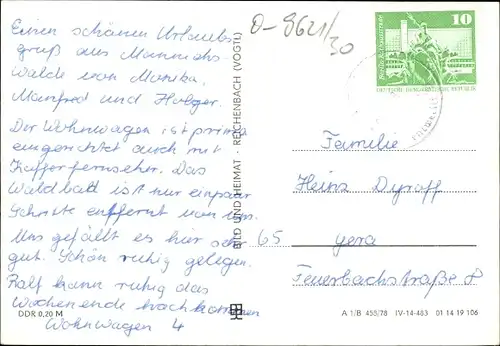 Einen schönen Urlaubs-
gruß aus Mannichs
walde von Monika,
Manfred und Holger.
Der Wohnwagen ist prima
eingerichtet auch mit
Kofferfernseher. Das
Waldbad ist nur ein paar
Schritte entfernt von uns.
Uns gefällt es hier sehr
gut. Schön ruhig gelegen.
Ralf kann ruhig das
Wochenende nachkommen
Wohnwagen 4
DDR 0,20 M
BILD UND HEIMAT · REICHENBACH (VOGTL)
0-8621/30
10
DEUTSCHE DEMOKRATISCHE REPUBLIK
Familie
Heinz Dyroff
65 Gera
Feuerbachstraße 8
A 1/B 458/78 IV-14-483 01 14 19 106